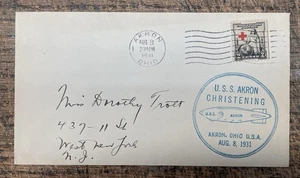 AKRON
AUG 8
1931
OHIO
U.S.S. AKRON
CHRISTENING
U.S.S. AKRON
AKRON, OHIO U.S.A.
AUG. 8, 1931
Miss Dorothy Trott
437-11 St
West New York
N.J.